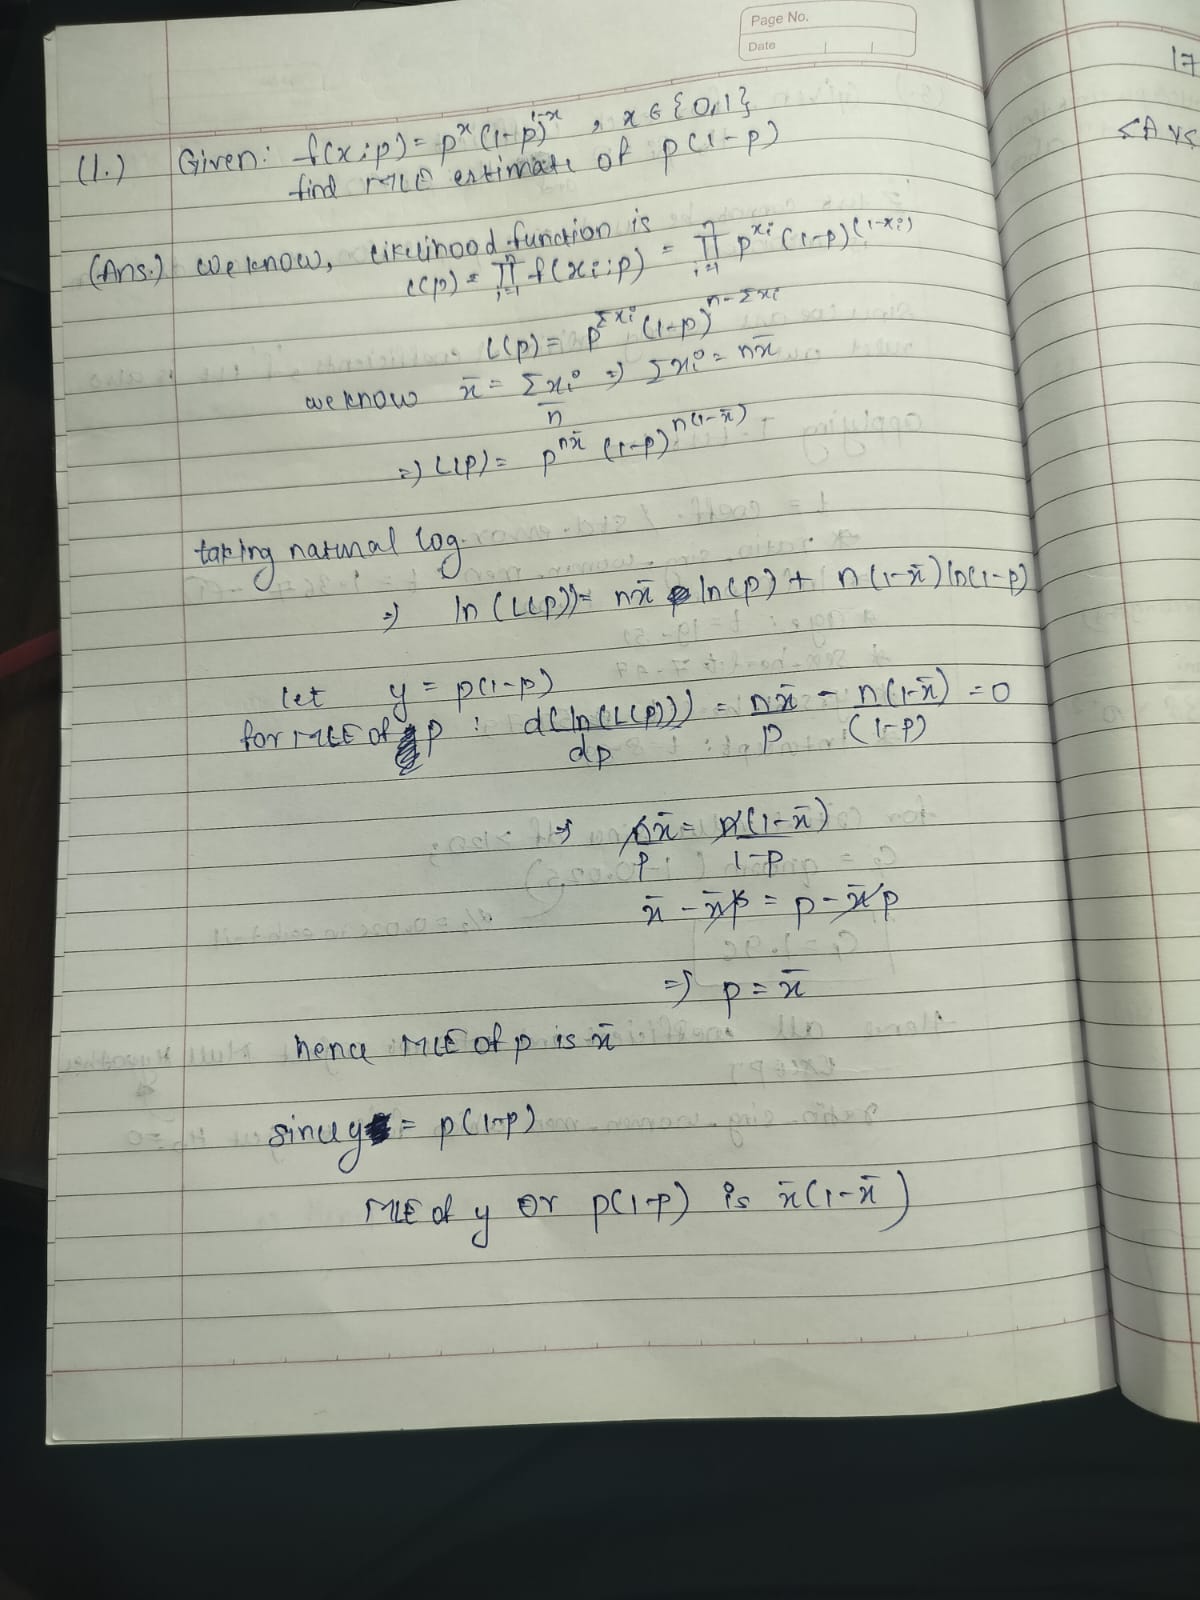 Page No.
Date
17
(1.) Given: f(x;p) = p^x (1-p)^{1-x}, x ∈ {0,1}
find MLE estimate of p(1-p)
(Ans.) We know, likelihood function is
L(p) = ∏_{i=1}^{n} f(xi;p) = ∏_{i=1}^{n} p^{xi} (1-p)^{(1-xi)}
L(p) = p^{Σxi} (1-p)^{n-Σxi}
we know x̄ = Σxi/n => Σxi = nx̄
=> L(p) = p^{nx̄} (1-p)^{n(1-x̄)}
taking natural log
=> ln(L(p)) = nx̄ ln(p) + n(1-x̄) ln(1-p)
let y = p(1-p)
for MLE of p : d(ln(L(p)))/dp = nx̄/p - n(1-x̄)/(1-p) = 0
=> nx̄/p = n(1-x̄)/1-p
x̄ - x̄p = p - x̄p
=> p = x̄
hence MLE of p is x̄
since y = p(1-p)
MLE of y or p(1-p) is x̄(1-x̄)